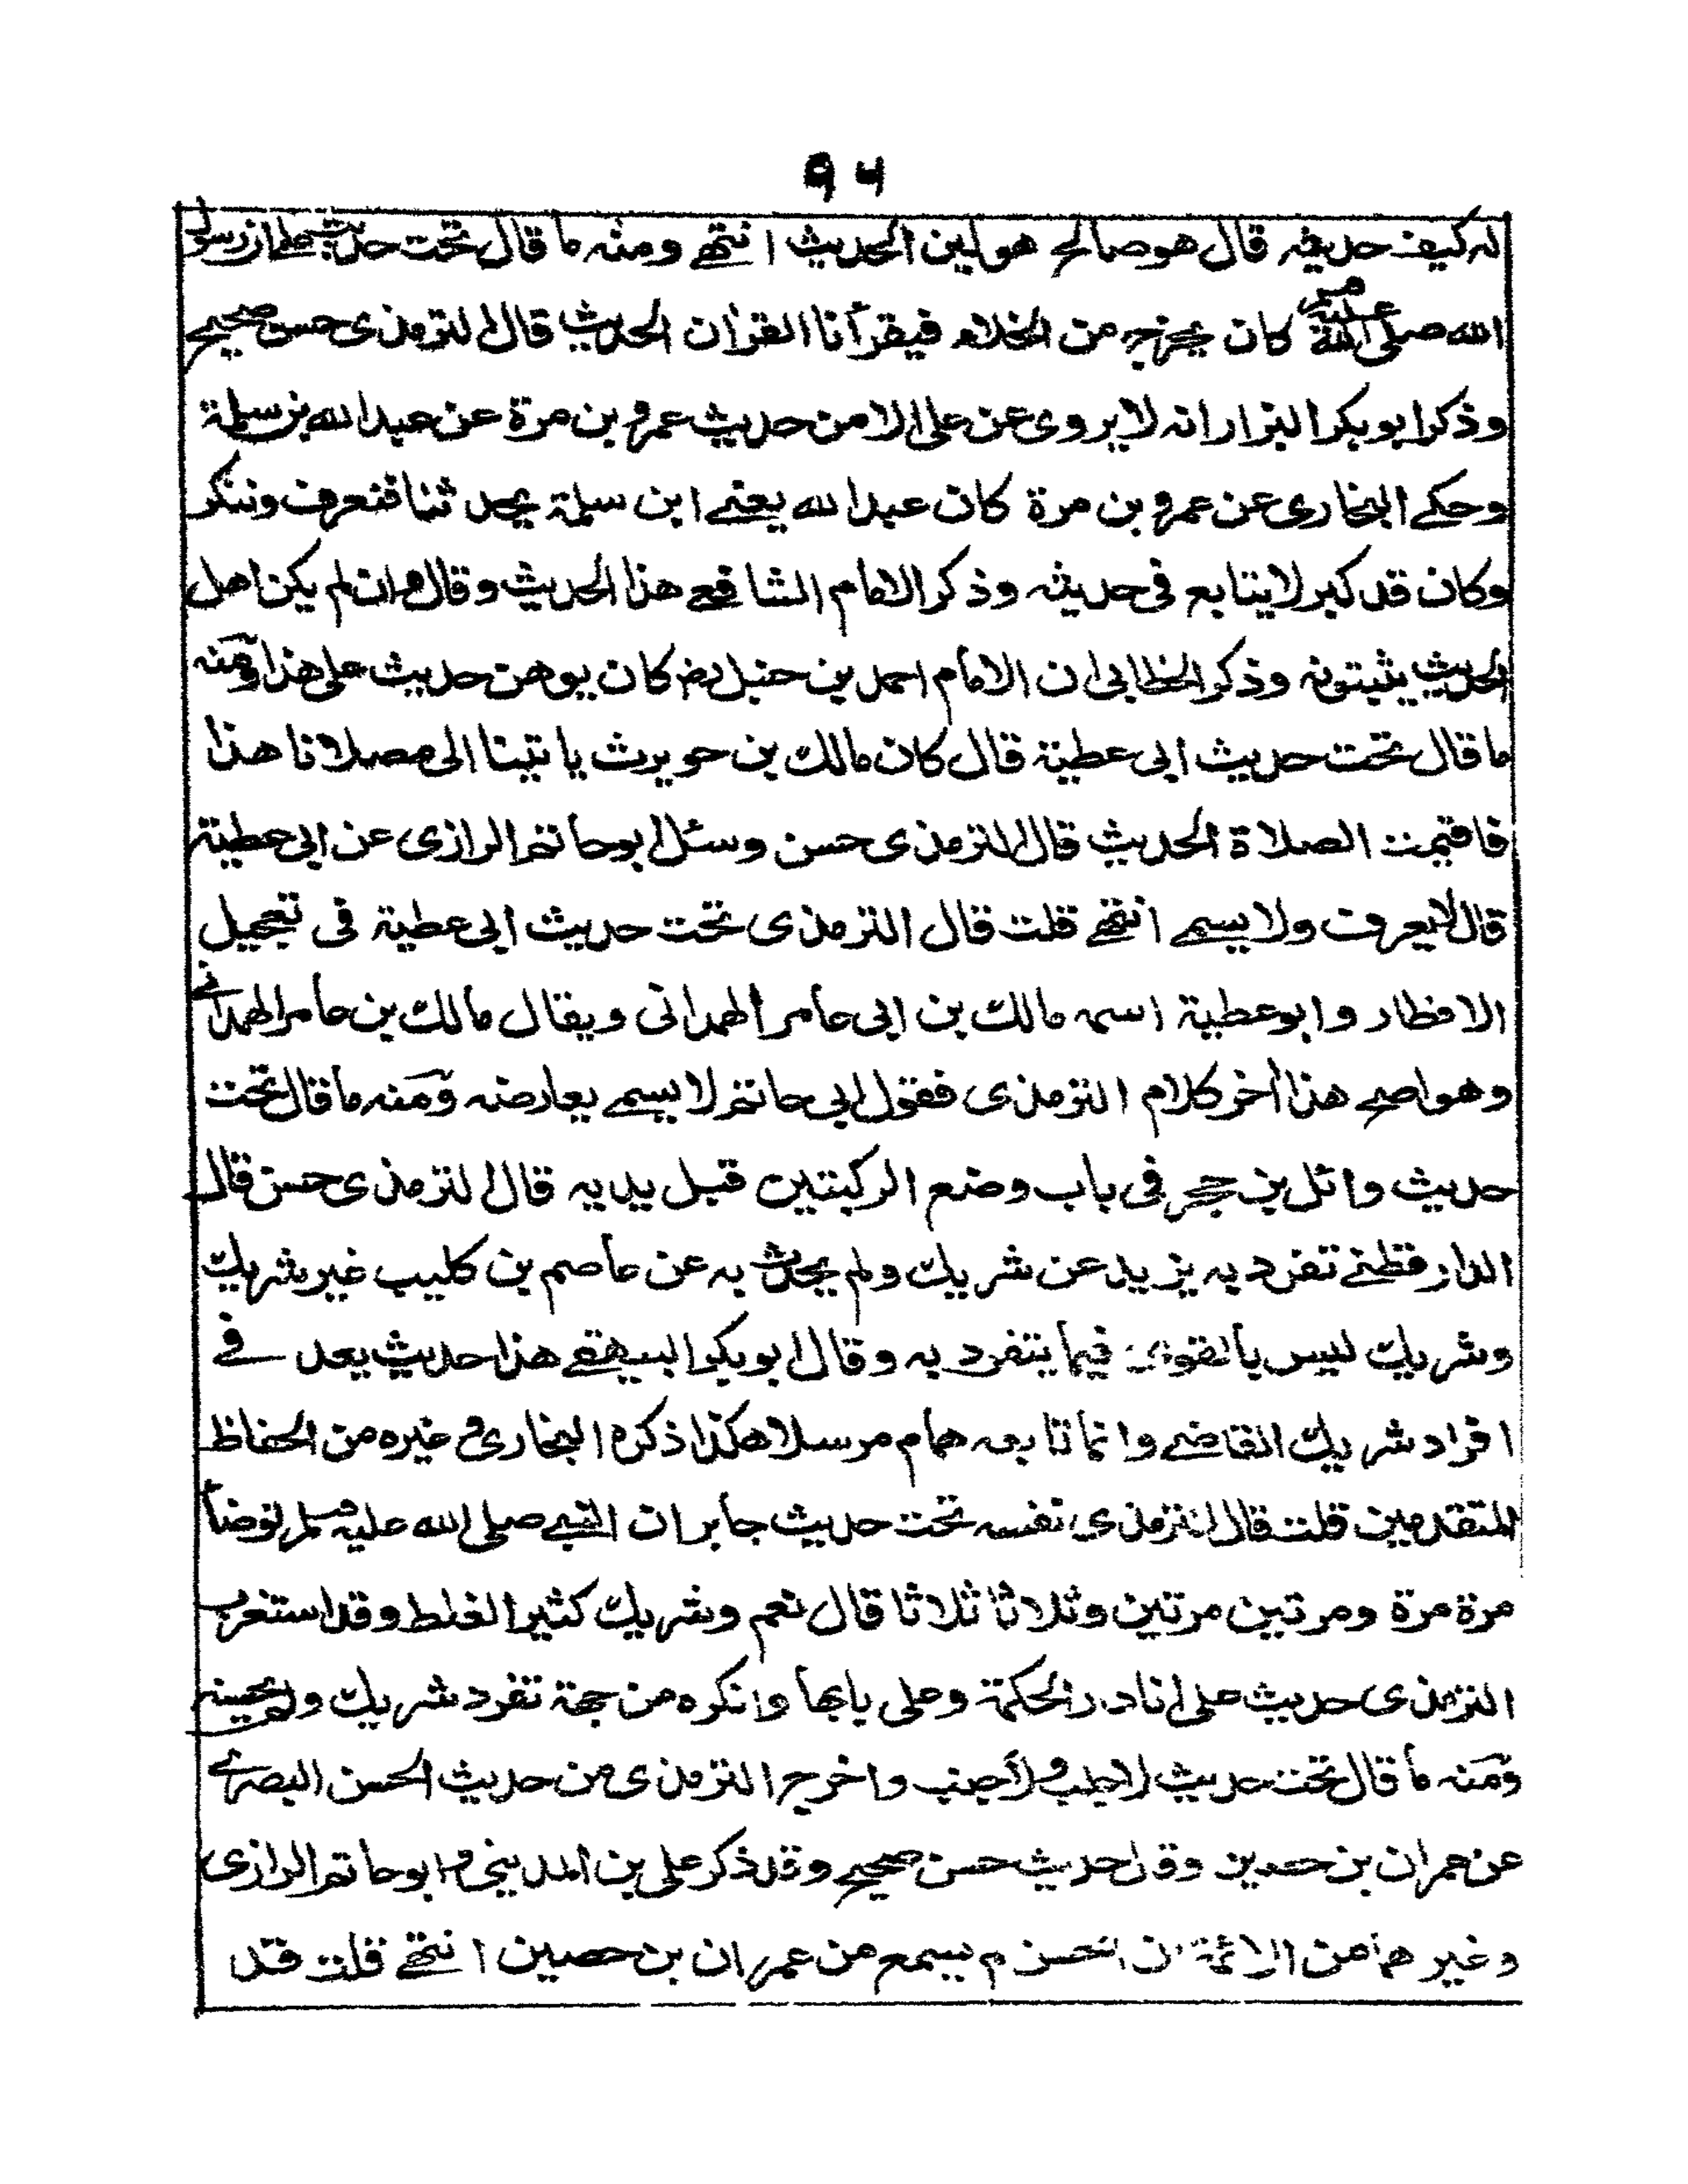 ٩٦
له كيف حديثه قال هو صالح هو لين الحديث انتهى ومنه ما قال تحت حديث علي ان رسول
الله صلى الله عليه وسلم كان يخرج من الخلاء فيقرأنا القرأن الحديث قال الترمذى حسن صحيح
وذكر ابو بكر البزار انه لا يروى عن على الا من حديث عمرو بن مرة عن عبد الله بن سلمة
وحكے البخارى عن عمرو بن مرة كان عبد الله يعنے ابن سلمة يحدثنا فنعرف وننكر
وكان قد كبر لا يتابع فى حديثه وذكر الامام الشافعے هذا الحديث وقال وان لم يكن اهل
الحديث يثبتونه وذكر الخطابى ان الامام احمد بن حنبل رض كان يوهن حديث على هذا ومنه
ما قال تحت حديث ابى عطية قال كان مالك بن حويرث ياتينا الى مصلانا هذا
فاقيمت الصلاة الحديث قال الترمذى حسن وسئل ابو حاتم الرازى عن ابى عطية
قال لا يعرف ولا يسمے انتهے قلت قال الترمذى تحت حديث ابى عطية فى تعجيل
الافطار وابو عطية اسمه مالك بن ابى عامر الهمدانى ويقال مالك بن عامر الهمدانے
وهو اصح هذا أخر كلام الترمذى فقول ابى حاتم لا يسمے يعارضه ومنه ما قال تحت
حديث وائل بن حجر فى باب وضع الركبتين قبل يديه قال الترمذى حسن قال
الدارقطنے تفرد به يزيد عن شريك ولم يحدث به عن عاصم بن كليب غير شريك
وشريك ليس بالقوى فيما يتفرد به وقال ابو بكر البيهقے هذا حديث يعد فے
افراد شريك القاضے وانما تابعه همام مرسلا هكذا ذكره البخارى وغيره من الحفاظ
المتقدمين قلت قال الترمذى نفسه تحت حديث جابر ان النبے صلى الله عليه وسلم توضأ
مرة مرة ومرتين مرتين وثلاثا ثلاثا قال نعم وشريك كثير الغلط وقد استغرب
الترمذى حديث على انا دار الحكمة وعلى بابها وانكره من جهة تفرد شريك ولم يحسنه
ومنه ما قال تحت حديث لا جلب ولا جنب واخرج الترمذى من حديث الحسن البصرے
عن عمران بن حصين وقال حديث حسن صحيح وقد ذكر على بن المدينى وابو حاتم الرازى
وغيرهما من الائمة ان الحسن لم يسمع من عمران بن حصين انتهے قلت قد